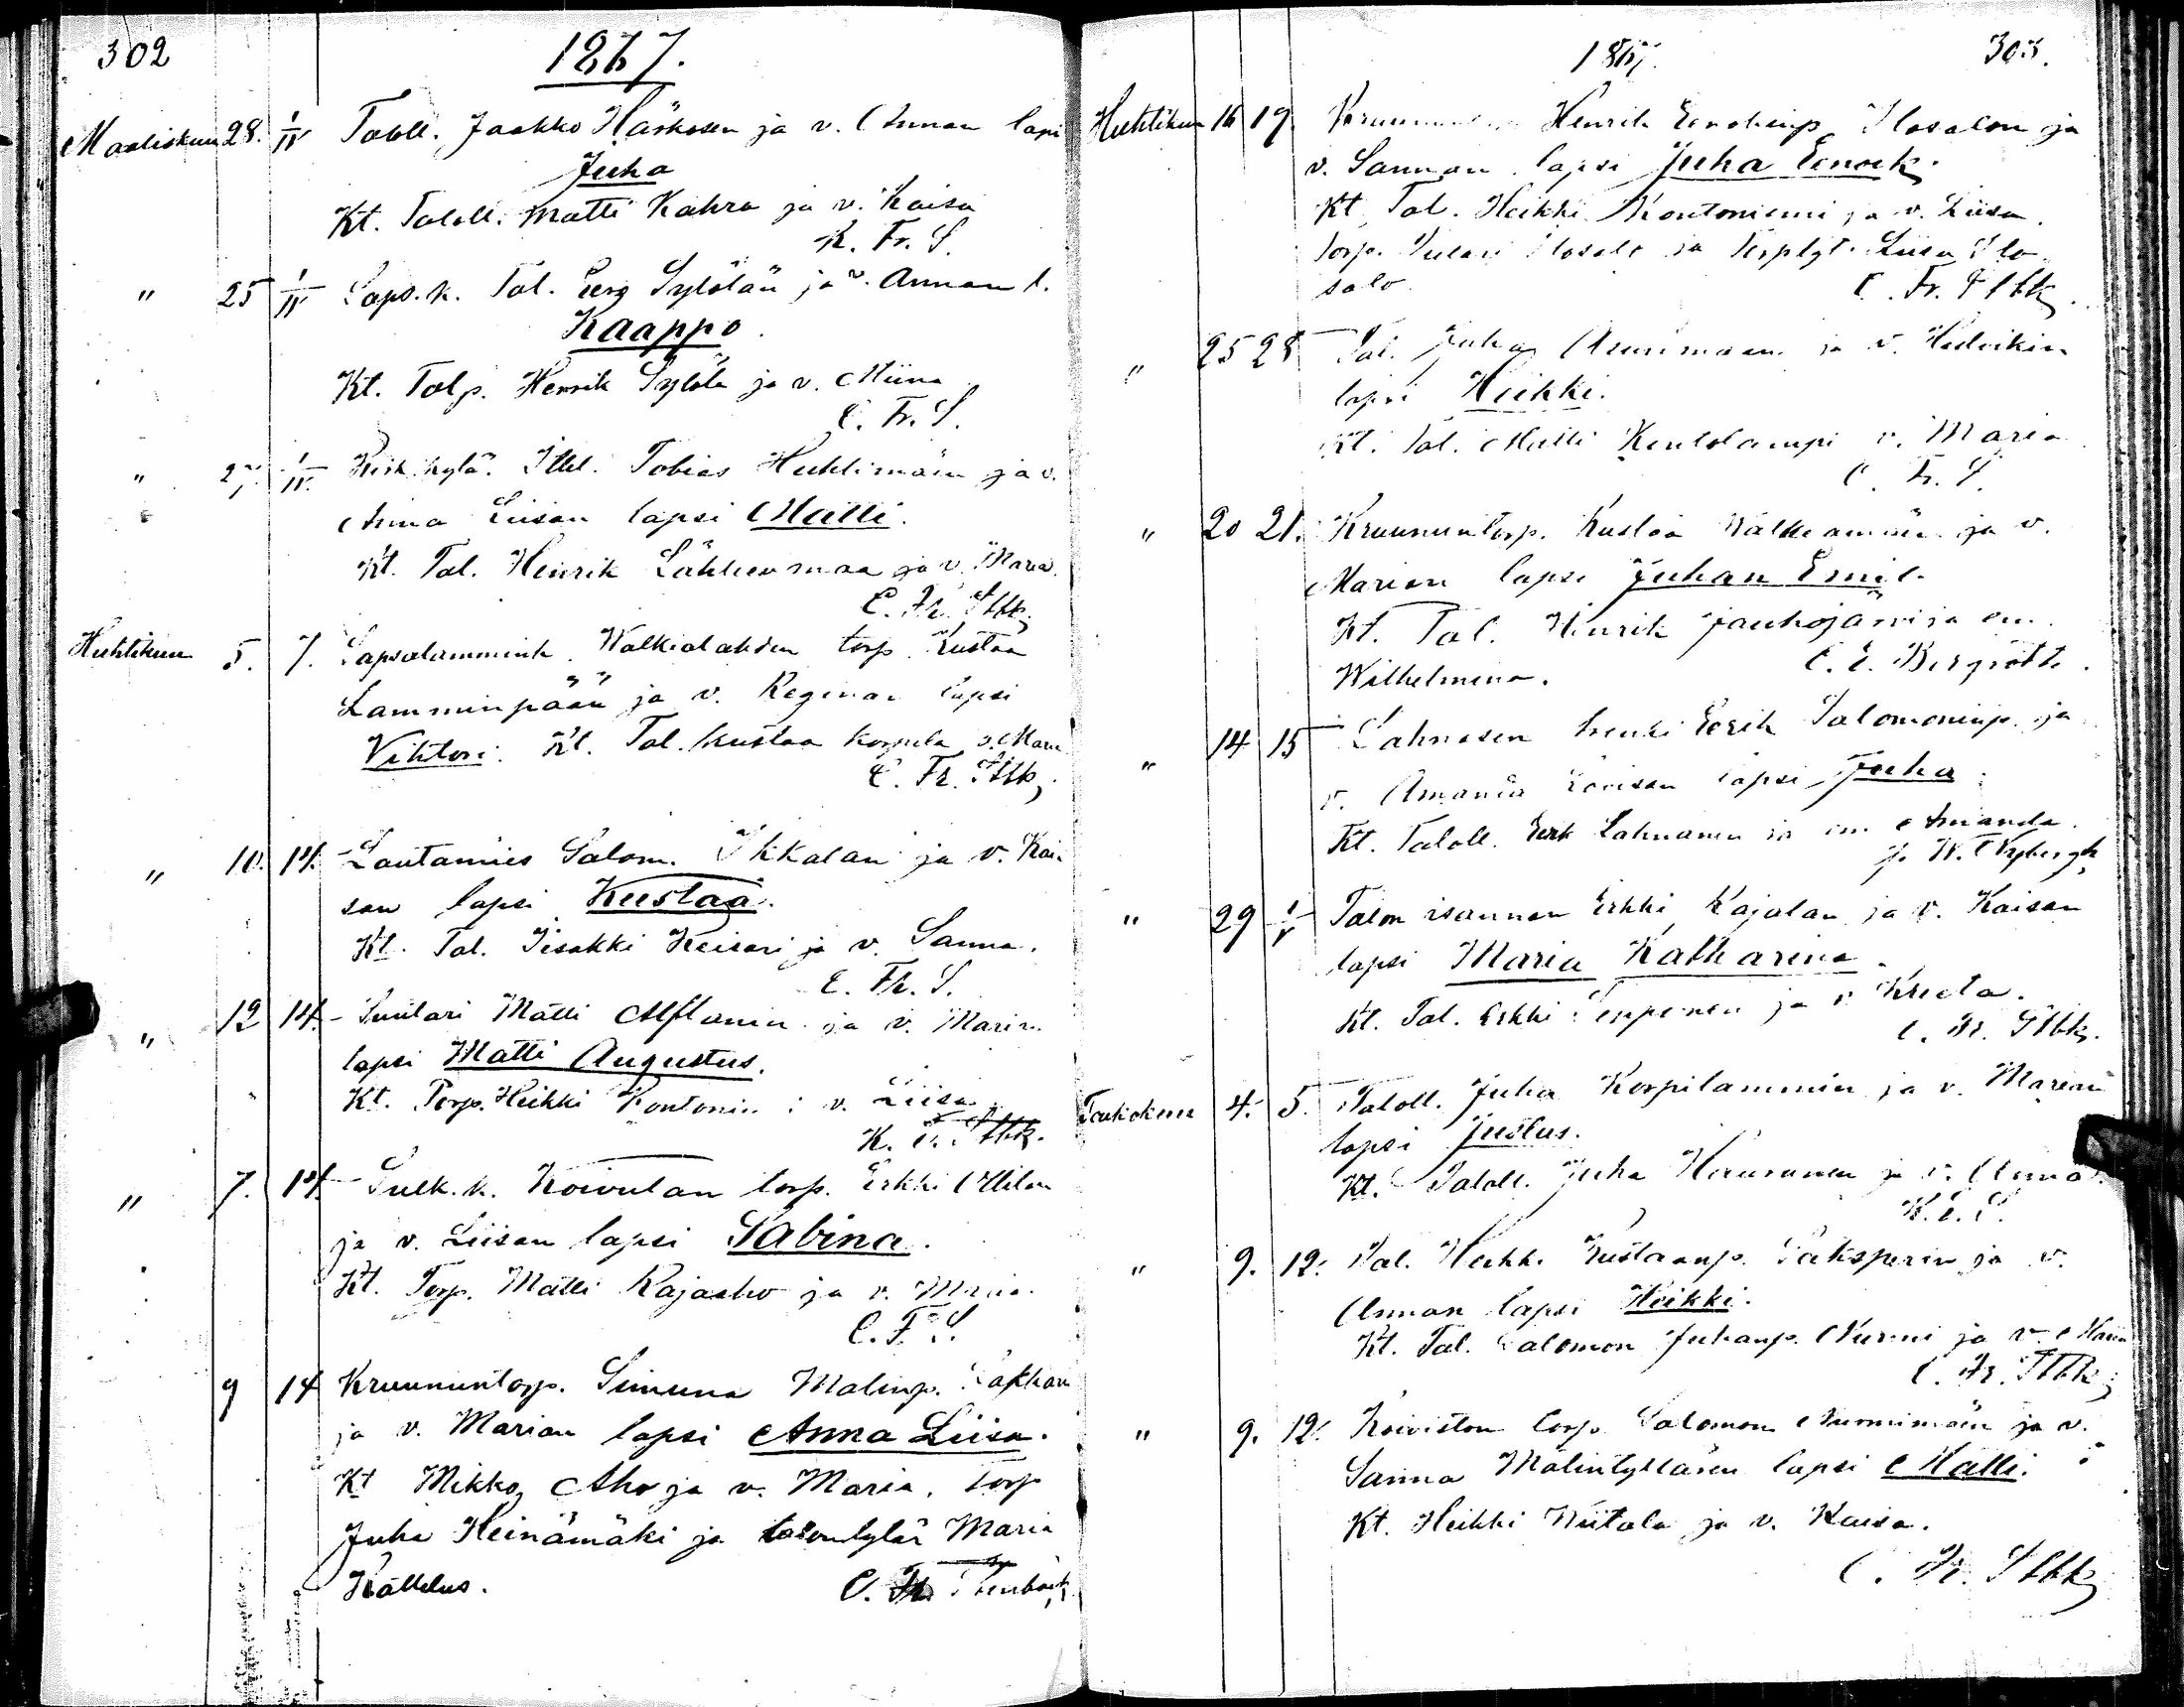 302
1867.
Maaliskuu 28. 1/IV Taloll. Jaakko Häskosen ja v. Annan lapsi
Juha
Kt. Taloll. Matti Kahra ja v. Kaisa
K. Fr. S.
" 25 1/IV Laps.k. Tal. Eerg Sylölän ja v. Annan l.
Kaappo.
Kt. Talp. Henrik Sylölä ja v. Miina
C. Fr. S.
" 27 1/IV. Kirk.kylä. Ittel. Tobias Huhtimäen ja v.
Anna Liisan lapsi Matti.
Kt. Tal. Henrik Lähteenmaa ja v. Maria.
C. Fr. Stbk.
Huhtikuu 5. 7. Lapsalammink. Walkialahden torp. Kustaa
Lamminpään ja v. Reginan lapsi
Vihtori. Kt. Tal. Kustaa Korpela v. Maria
C. Fr. Stbk.
" 10. 14. Lautamies Salom. Ikkalan ja v. Kai-
san lapsi Kustaa.
Kt. Tal. Iisakki Keisari ja v. Sanna.
C. Fr. S.
" 12 14. Suutari Matti Alftanin ja v. Marian
lapsi Matti Augustus.
Kt. Torp. Heikki Kontonie v. Liisa
K. Stbk.
" 7. 14. Sulk.k. Koivulan torp. Erkki Ollilan
ja v. Liisan lapsi Sabina.
Kt. Torp. Matti Rajaaho ja v. Maria.
C. F. S.
9 14 Kruununtorp. Simuna Matinp. Lakkan
ja v. Marian lapsi Anna Liisa.
Kt Mikko Aho ja v. Maria, torp
Juha Heinämäki ja talontytär Maria
Kättelus.
C. Fr. Stenbäck
1867. 303.
Huhtikuu 16 19. Henrik Enokinp. Ilosalon ja
v. Sannan lapsi Juha Eenock.
Kt. Tal. Heikki Kontoniemi ja v. Liisa.
torp. Ilosalo ja Liisa Ilo
salo. C. Fr. Stbk.
" 25 28 Tal. Juha ja v. Hedvikin
lapsi Heikki.
Kt. Tal. Matti Kentolampi v. Maria
C. Fr. S.
" 20 21. Kruununtorp. Kustaa Walkeamäen ja v.
Marian lapsi Juhan Emil.
Kt. Tal. Henrik Jauhojärvi ja em.
Wilhelmina. C. E. Bergroth.
" 14 15 Lahnasen Eerik Salomoninp. ja
v. Amanda Lovisan lapsi Juha.
Kt. Taloll. Eerk Lahnanen ja em. Amanda.
W. Nybergh
" 29 1/V Talon isännän Erkki Rajalan ja v. Kaisan
lapsi Maria Katharina.
Kt. Tal. Erkki Tepponen ja v. Kreeta.
C. Fr. Stbk.
Toukokuu 4. 5. Taloll. Juha Korpilammin ja v. Marian
lapsi Justus.
Kt. Taloll. Juha Hauranen ja v. Anna.
K. E. S.
" 9. 12. Tal. Heikki Kustaanp. Saksperin ja v.
Annan lapsi Heikki.
Kt. Tal. Salomon Juhanp. Nurmi ja v. Maria
C. Fr. Stbk.
" 9. 12. Koiviston torp. Salomon Nurmimäen ja v.
Sanna Matintyttären lapsi Matti.
Kt. Heikki Niitala ja v. Kaisa.
C. Fr. Stbk